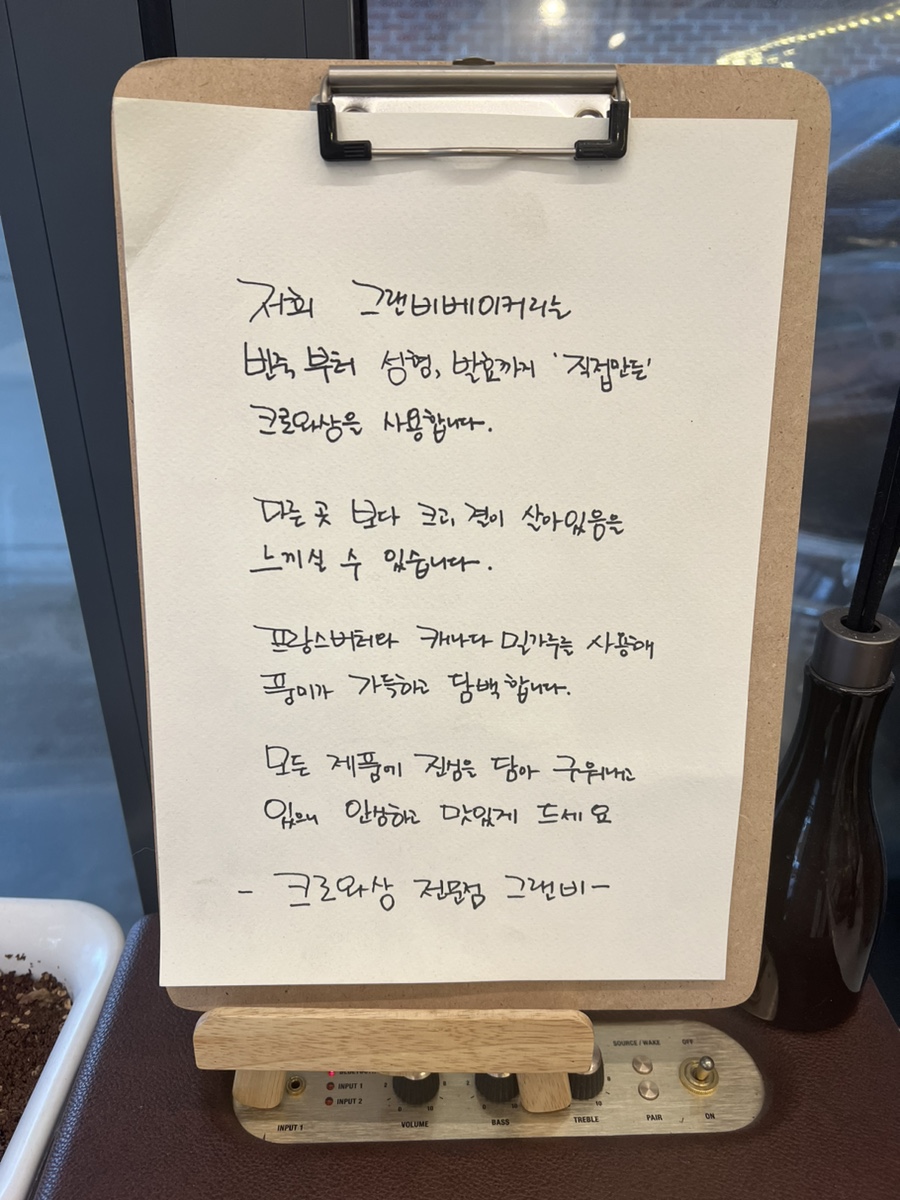 저희 그랜비베이커리는
반죽부터 성형, 발효까지 '직접만든'
크로와상을 사용합니다.
다른 곳 보다 크고, 결이 살아있음을
느끼실 수 있습니다.
프랑스버터와 캐나다 밀가루를 사용해
풍미가 가득하고 담백합니다.
모든 제품에 진심을 담아 구워내고
있으니 안심하고 맛있게 드세요
- 크로와상 전문점 그랜비-
SOURCE / WAKE OFF
INPUT 1
INPUT 2
INPUT 1 VOLUME BASS TREBLE PAIR ON